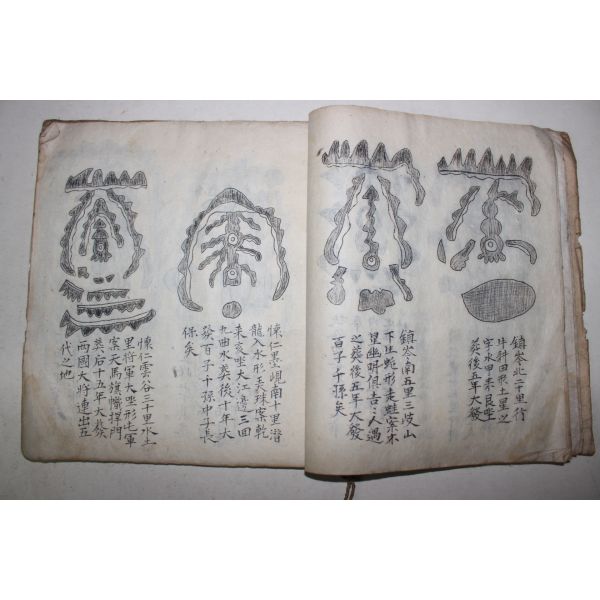 鎮岺北二十里行
牛斜田形土星之
字水甲來艮坐
葬後五年大發
鎮岺南五里三岐山
下生蛇形走蛙案木
星幽明俱吉之人過
之葬後五年大發
百子千孫矣
懷仁墨峴南十里潛
龍入水形玉珠案乾
來亥坐大江邊三回
九曲水葬後十年大
發百子千孫中子長
保矣
懷仁雲谷三十里水土
里將軍大坐形屯軍
案天馬旗幟捍門
葬后十五年大發
兩國大將連出五
代之地